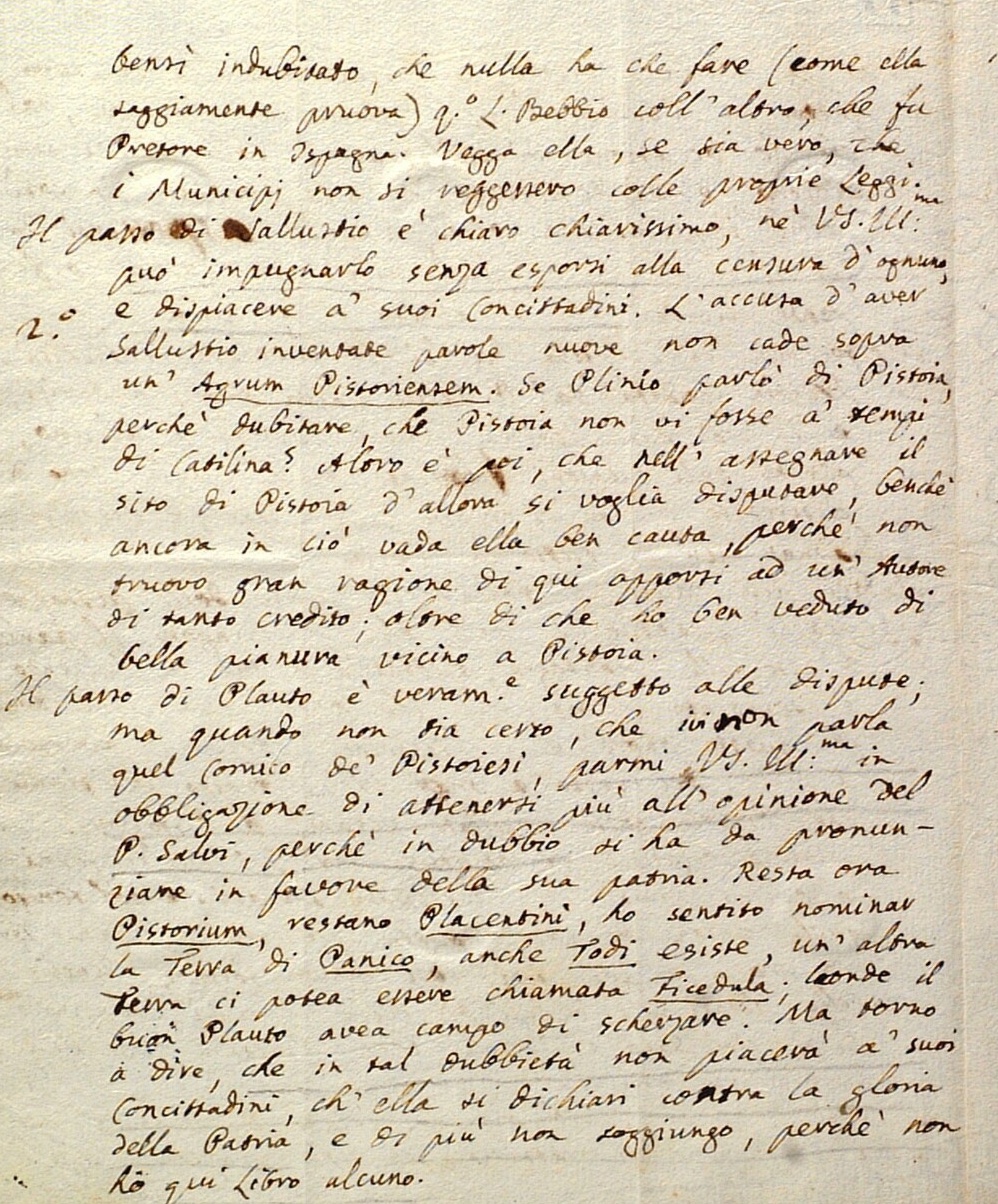 bensì indubitato, che nulla ha che fare (come ella
saggiamente pruova) q.º L. Bebbio coll' altro, che fu
Pretore in Ispagna. Vegga ella, se sia vero, che
i Municipj non si reggessero colle proprie Leggi.
Il passo di Sallustio è chiaro chiarissimo, nè VS. Ill:ma
può impugnarlo senza esporsi alla censura d'ognuno,
e dispiacere a' suoi Concittadini. L'accusa d'aver
2.º
Sallustio inventate parole nuove non cade sopra
un' Agrum Pistoriensem. Se Plinio parlò di Pistoia,
perchè dubitare, che Pistoia non vi fosse a' tempi
di Catilina? Altro è poi, che nell' assegnare il
sito di Pistoia d'allora si voglia disputare, benchè
ancora in ciò vada ella ben cauta, perchè non
truovo gran ragione di qui apporsi ad un' Autore
di tanto credito; oltre di che ho ben veduto di
bella pianura vicino a Pistoia.
Il passo di Plauto è veram.e suggetto alle dispute;
ma quando non sia certo, che ivi non parla
quel Comico de' Pistoiesi, parmi VS. Ill:ma in
obbligazione di attenersi più all' opinione del
P. Salvi, perchè in dubbio si ha da pronun-
ziare in favore della sua patria. Resta ora
Pistorium, restano Placentini, ho sentito nominar
la Terra di Panico, anche Todi esiste, un' altra
Terra ci potea essere chiamata Ficedula; laonde il
buon Plauto avea campo di scherzare. Ma torno
a dire, che in tal dubbietà non piacerà a' suoi
Concittadini, ch' ella si dichiari contra la gloria
della Patria, e di più non soggiungo, perchè non
ho qui Libro alcuno.